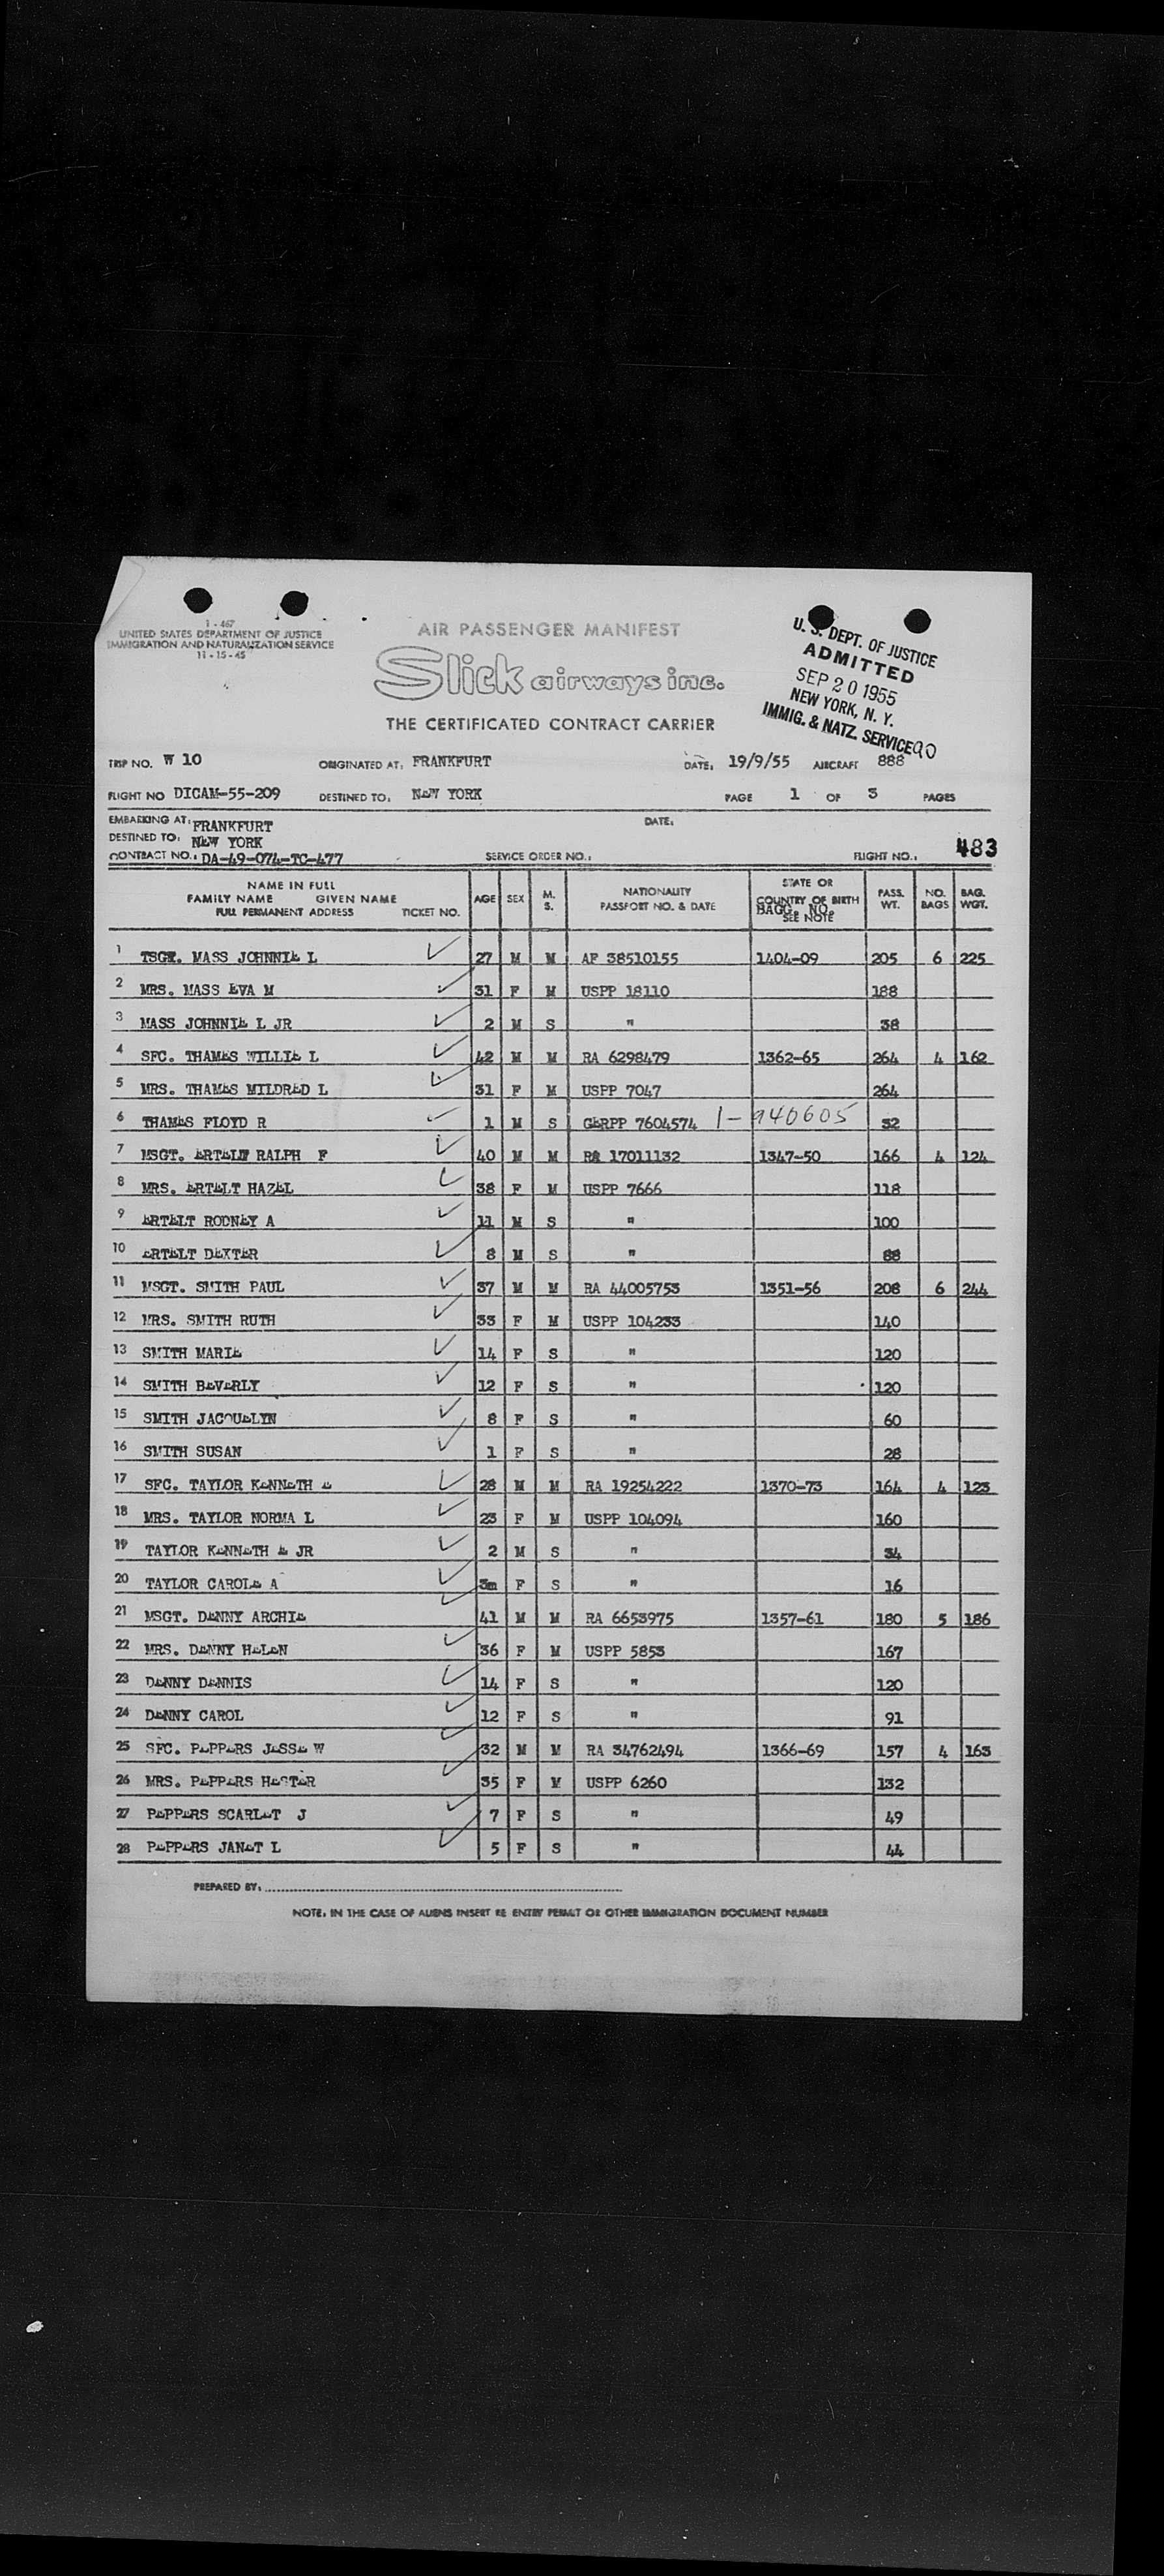 1 - 467
UNITED STATES DEPARTMENT OF JUSTICE
IMMIGRATION AND NATURALIZATION SERVICE
11 - 15 - 45
AIR PASSENGER MANIFEST
Slick airways inc.
THE CERTIFICATED CONTRACT CARRIER
U. S. DEPT. OF JUSTICE
ADMITTED
SEP 20 1955
NEW YORK, N. Y.
IMMIG. & NATZ. SERVICE 90
TRIP NO. W 10 ORIGINATED AT: FRANKFURT DATE: 19/9/55 AIRCRAFT 888
FLIGHT NO DICAM-55-209 DESTINED TO: NEW YORK PAGE 1 OF 3 PAGES
EMBARKING AT: FRANKFURT DATE:
DESTINED TO: NEW YORK
CONTRACT NO.: DA-49-074-TC-477 SERVICE ORDER NO.: FLIGHT NO.: 483
NAME IN FULL
FAMILY NAME GIVEN NAME
FULL PERMANENT ADDRESS TICKET NO. AGE SEX M. S. NATIONALITY PASSPORT NO. & DATE STATE OR COUNTRY OF BIRTH BAGG. NO. SEE NOTE PASS. WT. NO. BAGS BAG. WGT.
1 TSGT. MASS JOHNNIE L 27 M M AF 38510155 1404-09 205 6 225
2 MRS. MASS EVA M 31 F M USPP 18110 188
3 MASS JOHNNIE L JR 2 M S " 38
4 SFC. THAMES WILLIE L 42 M M RA 6298479 1362-65 264 4 162
5 MRS. THAMES MILDRED L 31 F M USPP 7047 264
6 THAMES FLOYD R 1 M S GERPP 7604574 1-940605 32
7 MSGT. ERTELT RALPH F 40 M M RA 17011132 1347-50 166 4 124
8 MRS. ERTELT HAZEL 38 F M USPP 7666 118
9 ERTELT RODNEY A 11 M S " 100
10 ERTELT DEXTER 8 M S " 88
11 MSGT. SMITH PAUL 37 M M RA 44005753 1351-56 208 6 244
12 MRS. SMITH RUTH 33 F M USPP 104233 140
13 SMITH MARIE 14 F S " 120
14 SMITH BEVERLY 12 F S " 120
15 SMITH JACQUELYN 8 F S " 60
16 SMITH SUSAN 1 F S " 28
17 SFC. TAYLOR KENNETH E 28 M M RA 19254222 1370-73 164 4 123
18 MRS. TAYLOR NORMA L 23 F M USPP 104094 160
19 TAYLOR KENNETH E JR 2 M S " 34
20 TAYLOR CAROLE A 3m F S " 16
21 MSGT. DENNY ARCHIE 41 M M RA 6653975 1357-61 180 5 186
22 MRS. DENNY HELEN 36 F M USPP 5853 167
23 DENNY DENNIS 14 F S " 120
24 DENNY CAROL 12 F S " 91
25 SFC. PEPPERS JESSE W 32 M M RA 34762494 1366-69 157 4 163
26 MRS. PEPPERS HESTER 35 F M USPP 6260 132
27 PEPPERS SCARLET J 7 F S " 49
28 PEPPERS JANET L 5 F S " 44
PREPARED BY:
NOTE: IN THE CASE OF ALIENS INSERT RE ENTRY PERMIT OR OTHER IMMIGRATION DOCUMENT NUMBER